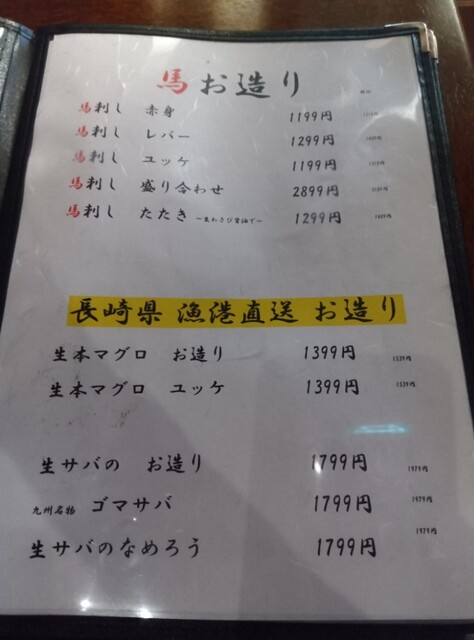 馬お造り
馬刺し 赤身 1199円
馬刺し レバー 1299円
馬刺し ユッケ 1199円
馬刺し 盛り合わせ 2899円
馬刺し たたき 1299円
長崎県 漁港直送 お造り
生本マグロ お造り 1399円 1539円
生本マグロ ユッケ 1399円 1539円
生サバの お造り 1799円 1979円
九州名物 ゴマサバ 1799円 1979円
生サバのなめろう 1799円 1979円